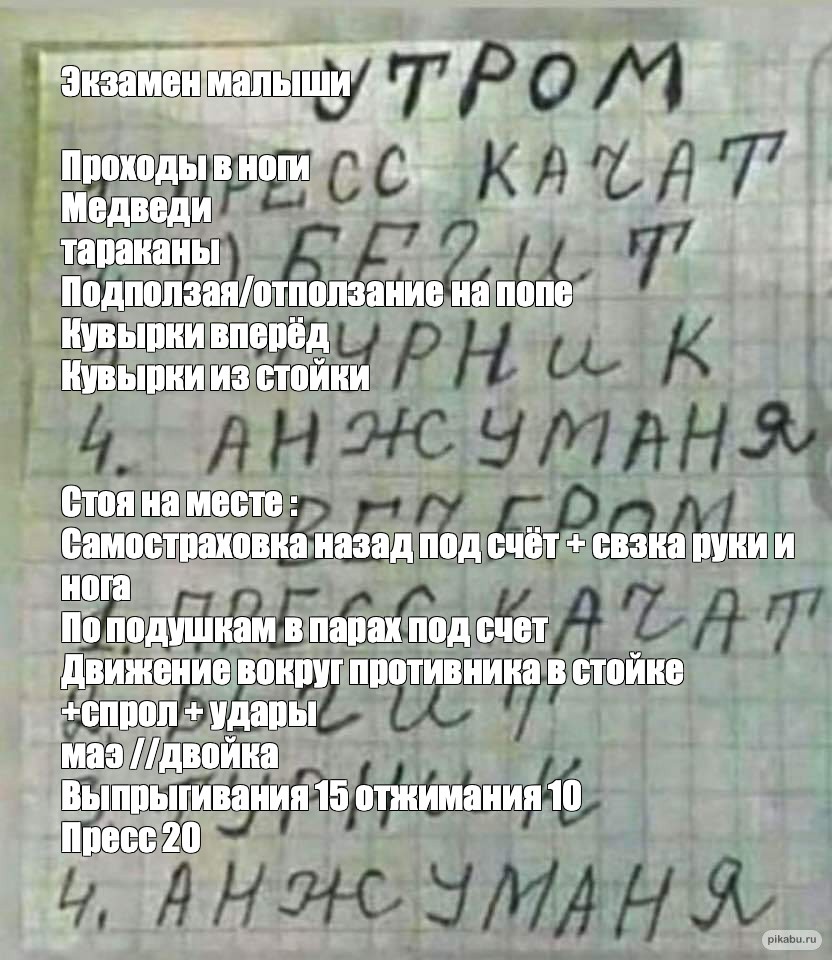 Экзамен малыши
УТРОМ
Проходы в ноги
ПРЕСС КАЧАТ
Медведи
тараканы
БЕГИТ
Подползая/отползание на попе
Кувырки вперёд
ТУРНИК
Кувырки из стойки
4. АНЖУМАНЯ
Стоя на месте :
ВЕЧЕРОМ
Самостраховка назад под счёт + свзка руки и
нога
1. ПРЕСС КАЧАТ
По подушкам в парах под счет
Движение вокруг противника в стойке
2. БЕГИТ
+спрол + удары
маэ //двойка
3. ТУРНИК
Выпрыгивания 15 отжимания 10
Пресс 20
4. АНЖУМАНЯ
pikabu.ru